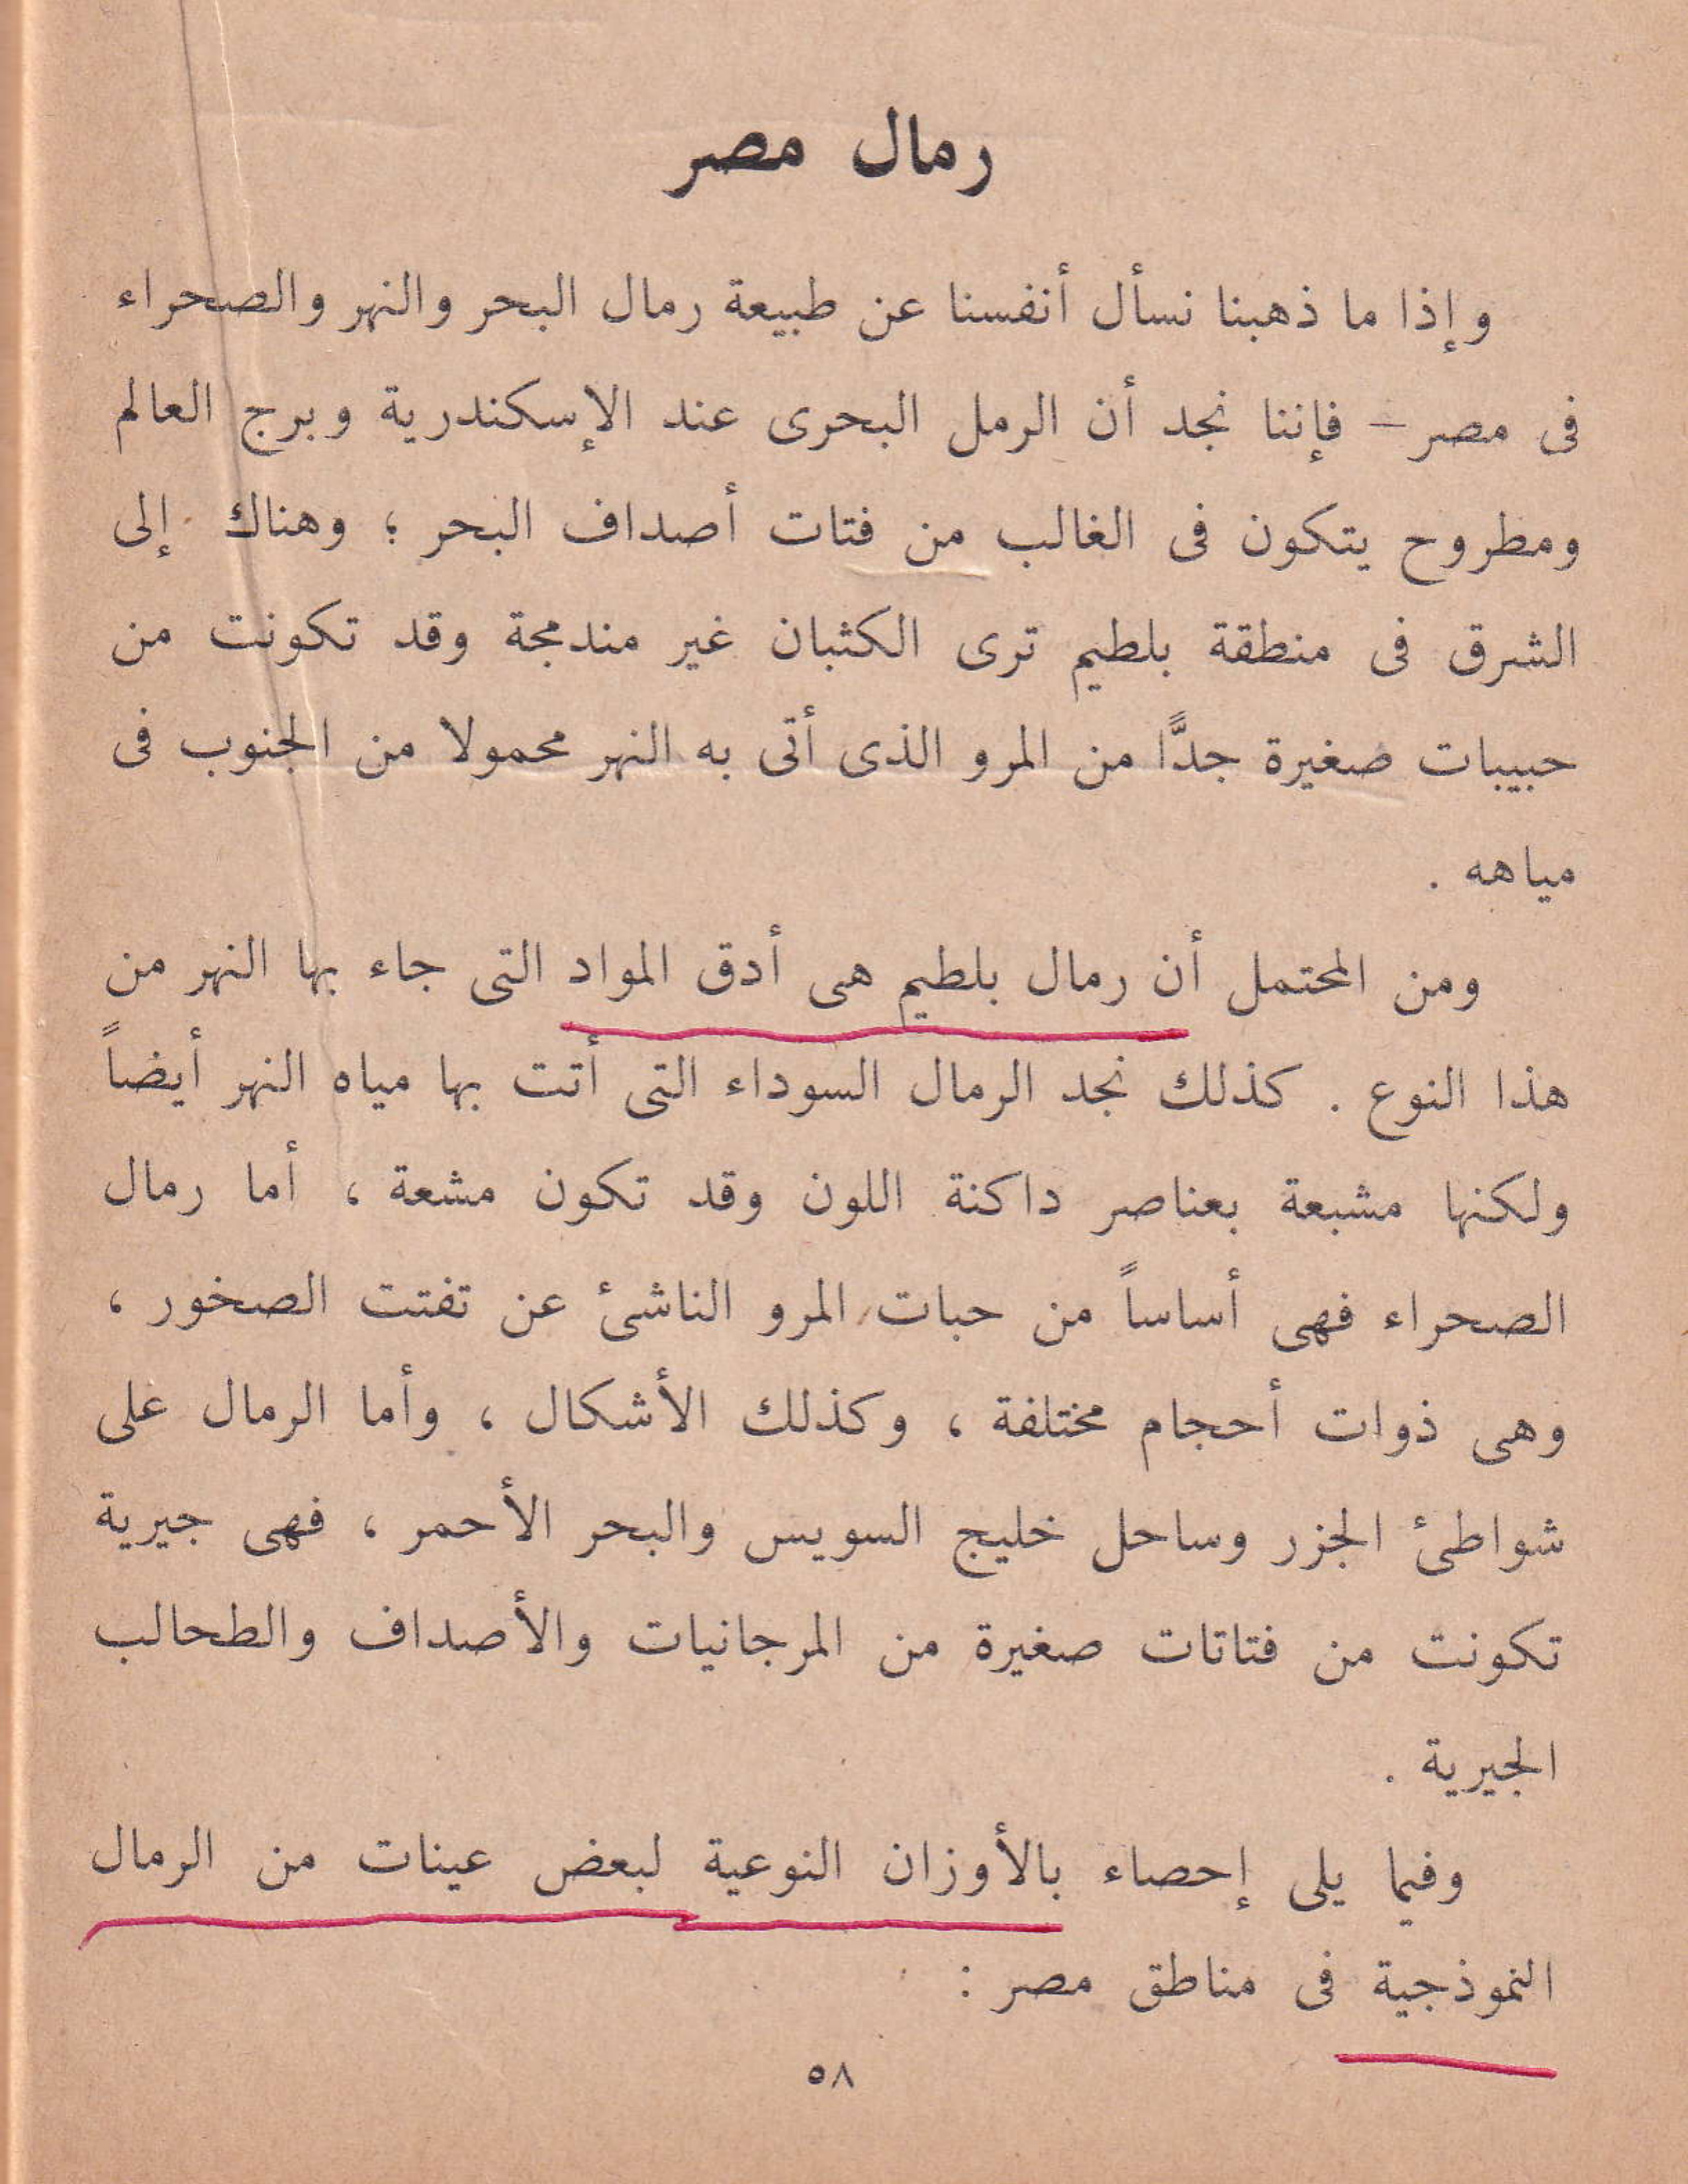 رمال مصر
وإذا ما ذهبنا نسأل أنفسنا عن طبيعة رمال البحر والنهر والصحراء
فى مصر – فإننا نجد أن الرمل البحرى عند الإسكندرية وبرج العالم
ومطروح يتكون فى الغالب من فتات أصداف البحر ؛ وهناك إلى
الشرق فى منطقة بلطيم ترى الكثبان غير مندمجة وقد تكونت من
حبيبات صغيرة جدًّا من المرو الذى أتى به النهر محمولا من الجنوب فى
مياهه .
ومن المحتمل أن رمال بلطيم هى أدق المواد التى جاء بها النهر من
هذا النوع . كذلك نجد الرمال السوداء التى أتت بها مياه النهر أيضاً
ولكنها مشبعة بعناصر داكنة اللون وقد تكون مشعة ، أما رمال
الصحراء فهى أساساً من حبات المرو الناشئ عن تفتت الصخور ،
وهى ذوات أحجام مختلفة ، وكذلك الأشكال ، وأما الرمال على
شواطئ الجزر وساحل خليج السويس والبحر الأحمر ، فهى جيرية
تكونت من فتاتات صغيرة من المرجانيات والأصداف والطحالب
الجيرية .
وفيما يلى إحصاء بالأوزان النوعية لبعض عينات من الرمال
النموذجية فى مناطق مصر :
٥٨